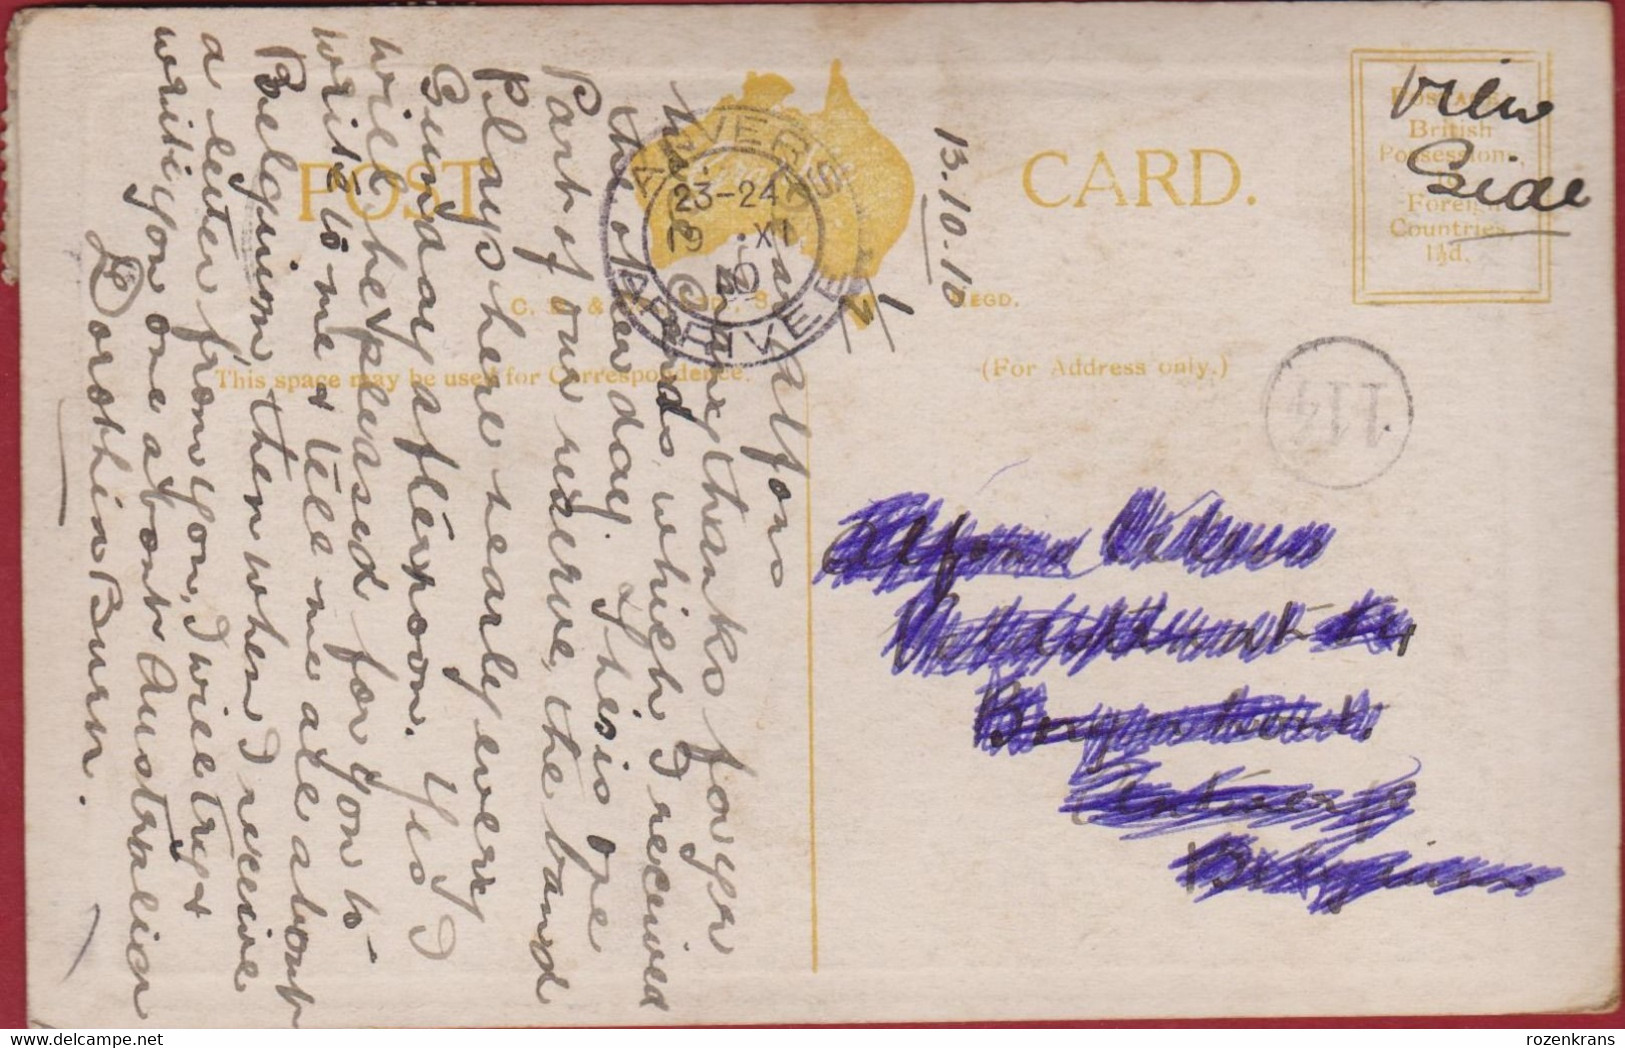 POST CARD.
13.10.10
View
Side
POSTAGE
British
Possessions,
Foreign
Countries,
1½d.
REGD.
This space may be used for Correspondence.
(For Address only.)
ANVERS
23-24
XI
10
ARRIVEE
114
Dear Alfons
Many thanks for yr
the cards, which I received
the other day. This is one
Part of our reserve, the band
Plays here nearly every
Sunday afternoon. Yes I
will be pleased for you to
write to me & tell me all about
Belguiom then when I receive
a letter from you, I will try &
write you one about Australian
Dorothin Burn.
Belgium
rozenkrans